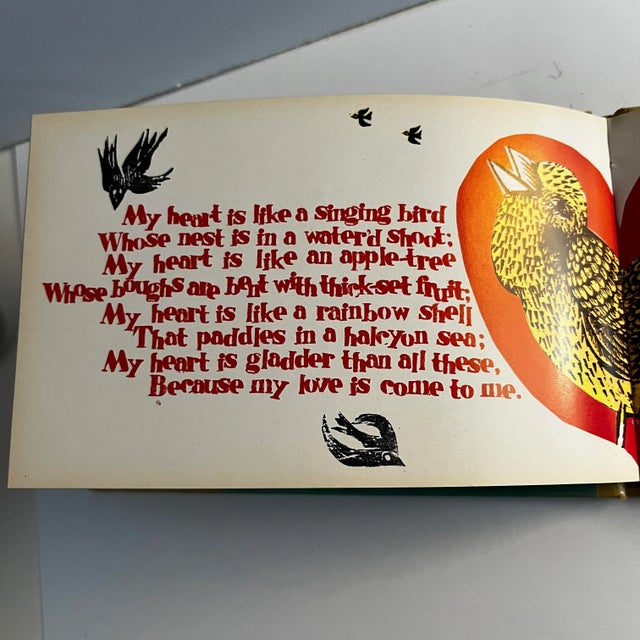 My heart is like a singing bird
Whose nest is in a water'd shoot;
My heart is like an apple-tree
Whose boughs are bent with thick-set fruit;
My heart is like a rainbow shell
That paddles in a halcyon sea;
My heart is gladder than all these,
Because my love is come to me.